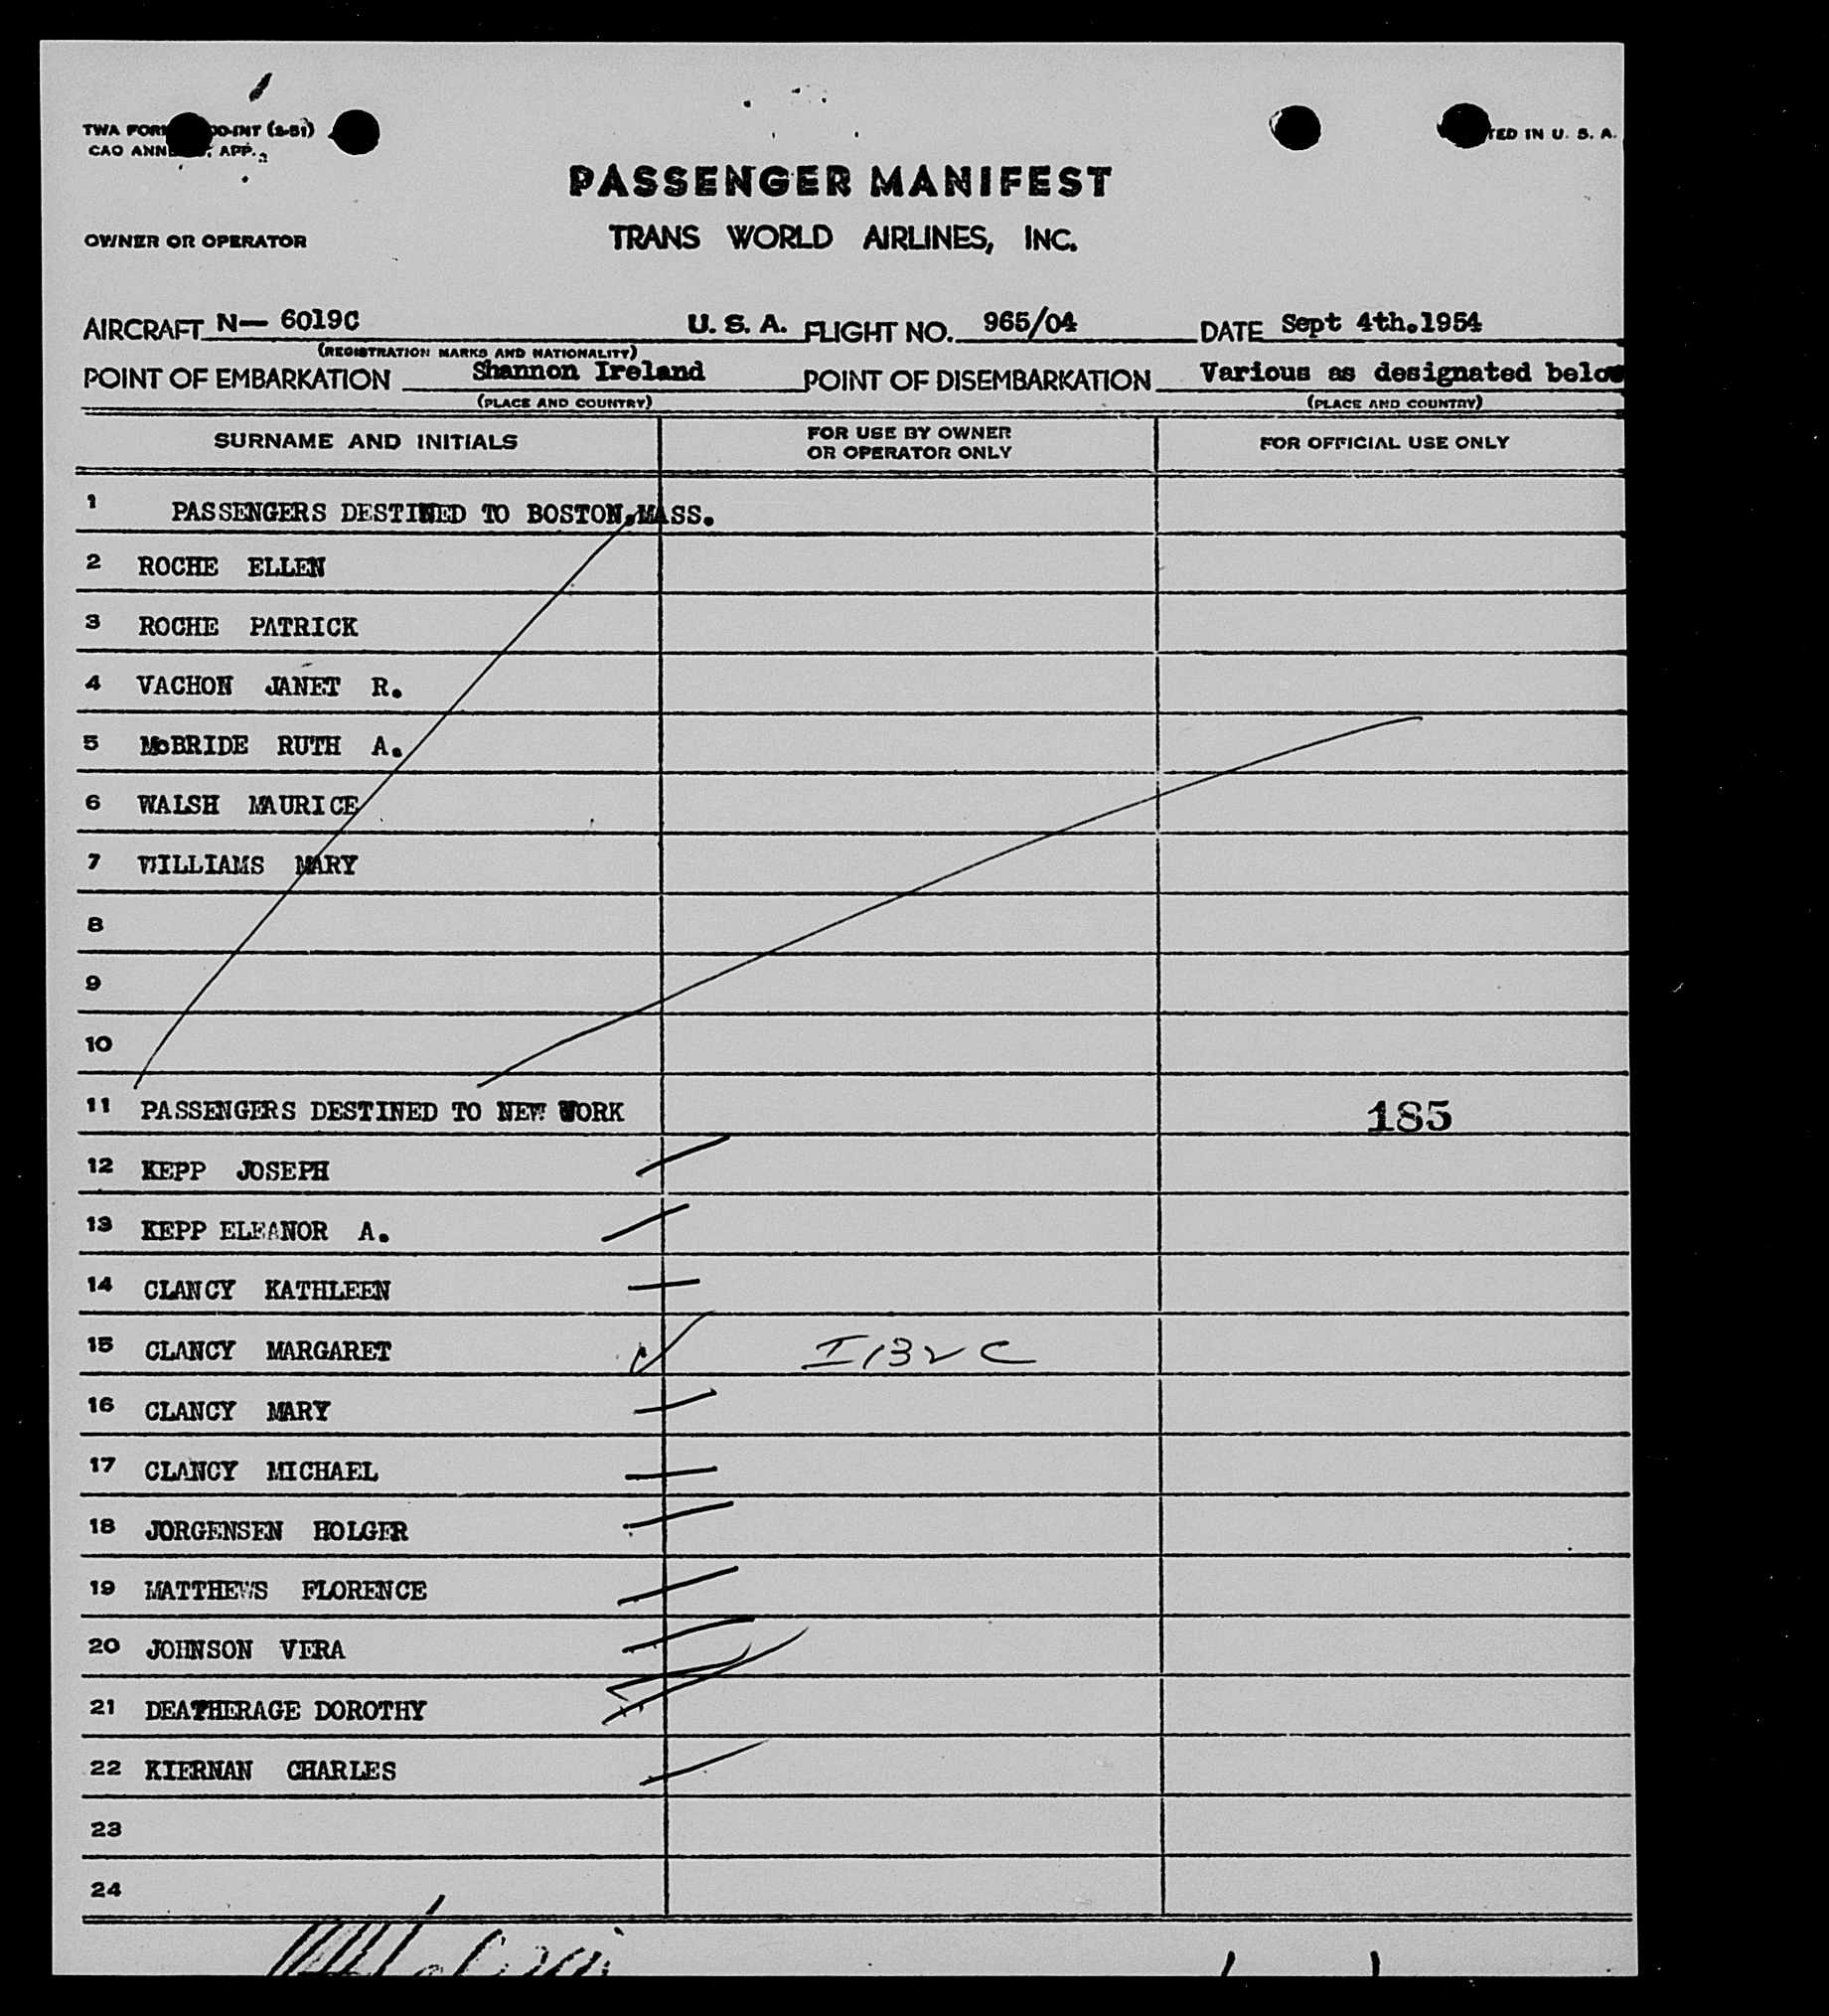 TWA FORM OO-INT (2-51)
TED IN U. S. A.
CAO ANN APP. 2
PASSENGER MANIFEST
OWNER OR OPERATOR TRANS WORLD AIRLINES, INC.
AIRCRAFT N— 6019C U. S. A. FLIGHT NO. 965/04 DATE Sept 4th.1954
(REGISTRATION MARKS AND NATIONALITY)
POINT OF EMBARKATION Shannon Ireland POINT OF DISEMBARKATION Various as designated below
(PLACE AND COUNTRY) (PLACE AND COUNTRY)
SURNAME AND INITIALS FOR USE BY OWNER OR OPERATOR ONLY FOR OFFICIAL USE ONLY
1 PASSENGERS DESTINED TO BOSTON,MASS.
2 ROCHE ELLEN
3 ROCHE PATRICK
4 VACHON JANET R.
5 McBRIDE RUTH A.
6 WALSH MAURICE
7 WILLIAMS MARY
8
9
10
11 PASSENGERS DESTINED TO NEW YORK 185
12 KEPP JOSEPH
13 KEPP ELEANOR A.
14 CLANCY KATHLEEN
15 CLANCY MARGARET
16 CLANCY MARY
17 CLANCY MICHAEL
18 JORGENSEN HOLGER
19 MATTHEWS FLORENCE
20 JOHNSON VERA
21 DEATHERAGE DOROTHY
22 KIERNAN CHARLES
23
24